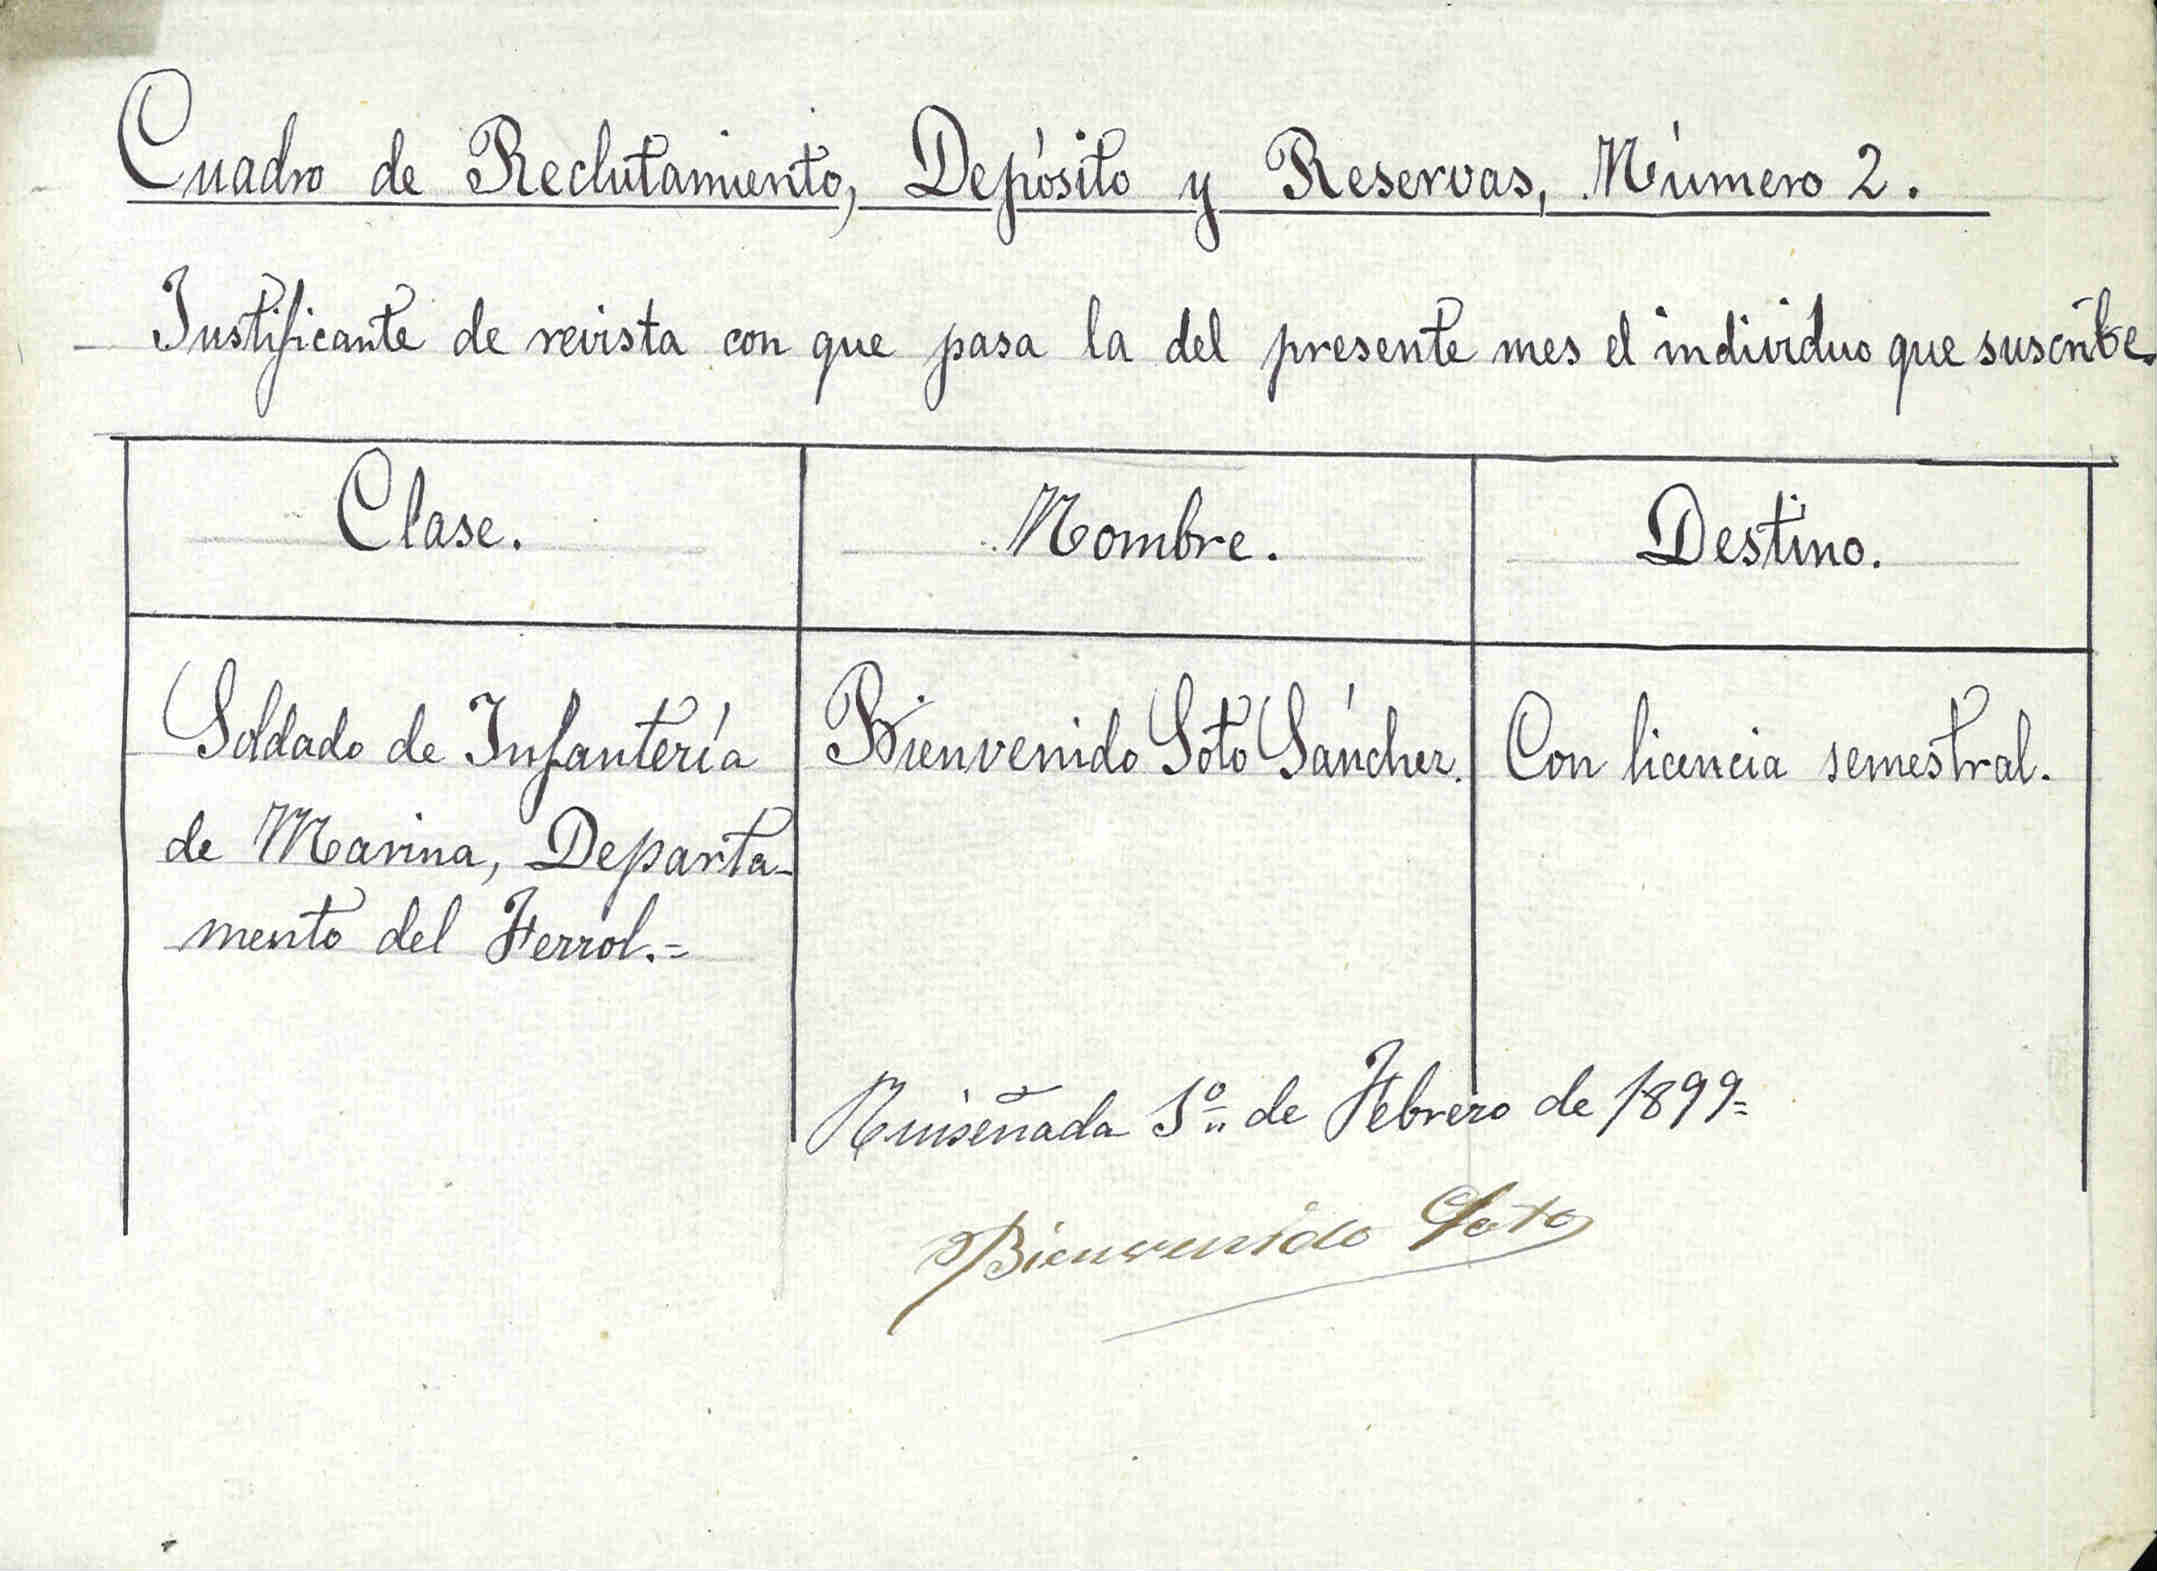 Cuadro de Reclutamiento, Depósito y Reservas, Número 2.
Justificante de revista con que pasa la del presente mes el individuo que suscribe.
Clase. Nombre. Destino.
Soldado de Infantería Bienvenido Soto Sánchez. Con licencia semestral.
de Marina, Departa-
mento del Ferrol.=
Ruiseñada 1º de Febrero de 1899=
Bienvenido Soto